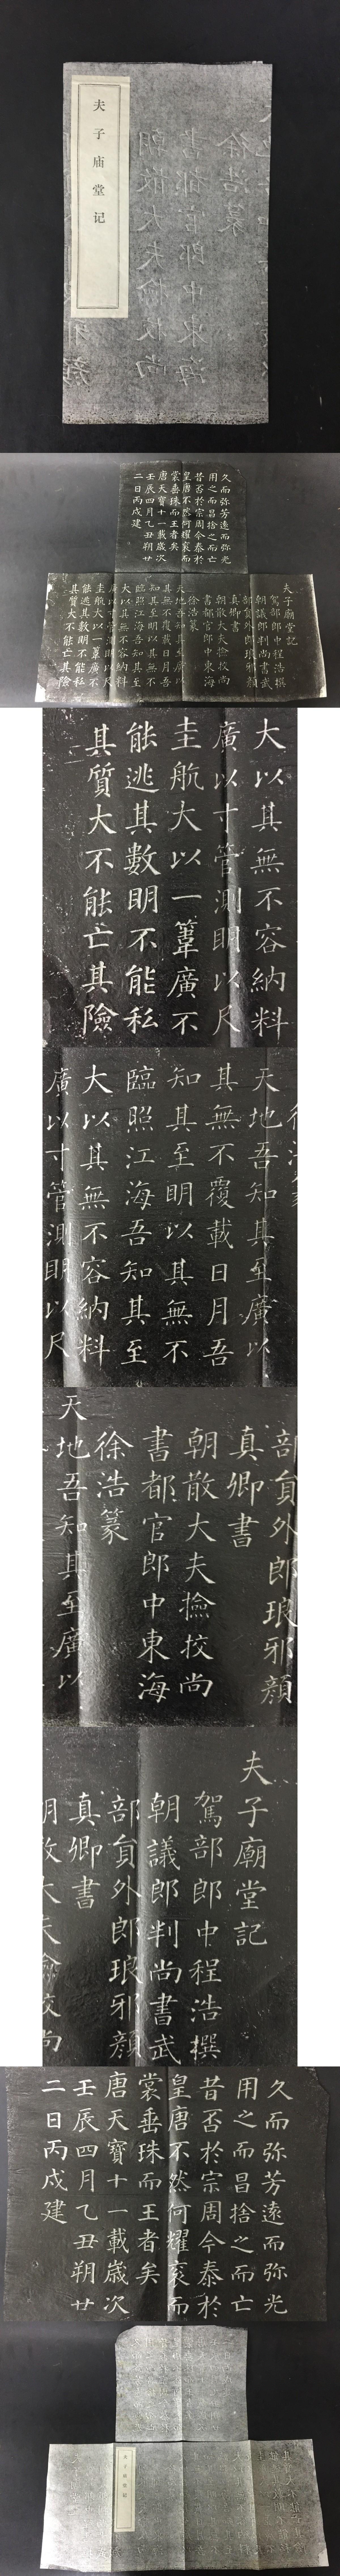 夫子庙堂记
久而弥芳遠而弥光
用之而昌捨之而亡
昔否於宗周今泰於
皇唐不然何耀衮而
裳垂珠而王者矣
唐天寶十一載歲次
壬辰四月乙丑朔廿
二日丙戌建
夫子廟堂記
駕部郎中程浩撰
朝議郎判尚書武
部貟外郎琅邪顔
真卿書
朝散大夫撿挍尚
書都官郎中東海
徐浩篆
天地吾知其至廣以
其無不覆載日月吾
知其至明以其無不
臨照江海吾知其至
大以其無不容納料
廣以寸管測明以尺
圭航大以一葦廣不
能逃其數明不能私
其質大不能亡其險
大以其無不容納料
廣以寸管測明以尺
圭航大以一葦廣不
能逃其數明不能私
其質大不能亡其險
天地吾知其至廣以
其無不覆載日月吾
知其至明以其無不
臨照江海吾知其至
大以其無不容納料
廣以寸管測明以尺
部貟外郎琅邪顔
真卿書
朝散大夫撿挍尚
書都官郎中東海
徐浩篆
天地吾知其至廣以
夫子廟堂記
駕部郎中程浩撰
朝議郎判尚書武
部貟外郎琅邪顔
真卿書
朝散大夫撿挍尚
久而弥芳遠而弥光
用之而昌捨之而亡
昔否於宗周今泰於
皇唐不然何耀衮而
裳垂珠而王者矣
唐天寶十一載歲次
壬辰四月乙丑朔廿
二日丙戌建
夫子庙堂记